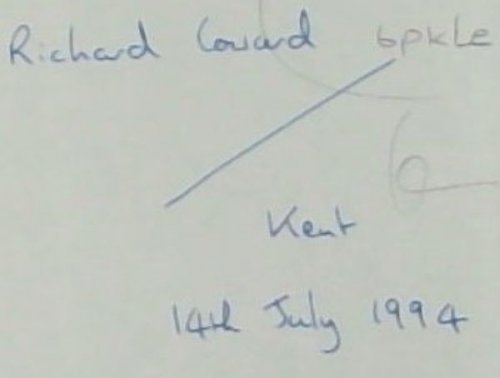 Richard Coward 6pkLe
6
Kent
14th July 1994